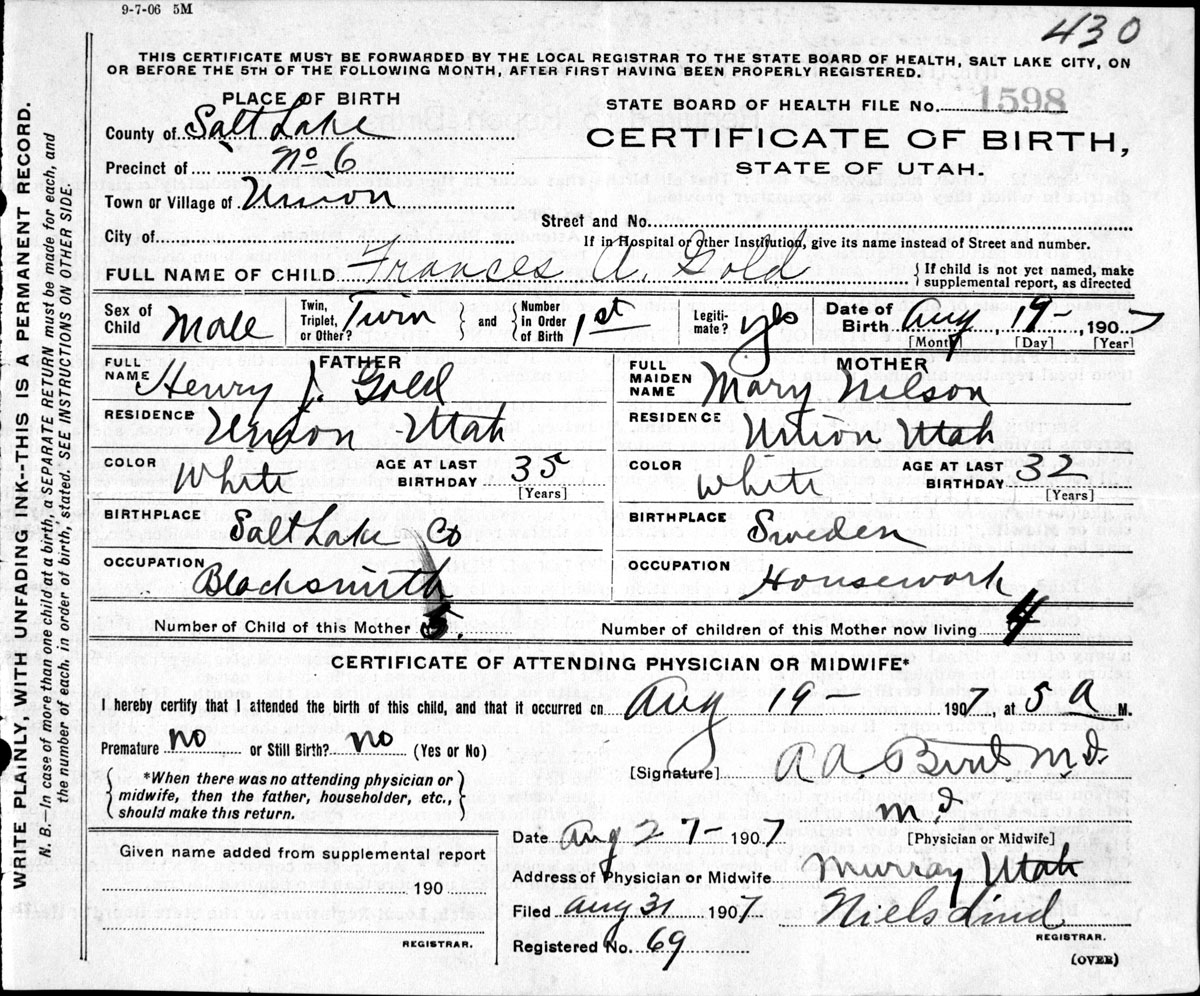 9-7-06 5M
430
THIS CERTIFICATE MUST BE FORWARDED BY THE LOCAL REGISTRAR TO THE STATE BOARD OF HEALTH, SALT LAKE CITY, ON
OR BEFORE THE 5TH OF THE FOLLOWING MONTH, AFTER FIRST HAVING BEEN PROPERLY REGISTERED.
WRITE PLAINLY, WITH UNFADING INK--THIS IS A PERMANENT RECORD.
N. B.—In case of more than one child at a birth, a SEPARATE RETURN must be made for each, and
the number of each, in order of birth, stated. SEE INSTRUCTIONS ON OTHER SIDE.
PLACE OF BIRTH
County of Salt Lake
Precinct of No 6
Town or Village of Union
City of
STATE BOARD OF HEALTH FILE No. 1598
CERTIFICATE OF BIRTH,
STATE OF UTAH.
Street and No.
If in Hospital or other Institution, give its name instead of Street and number.
FULL NAME OF CHILD Frances A. Gold
If child is not yet named, make
supplemental report, as directed
Sex of Child Male
Twin, Triplet, or Other? Twin
and Number in Order of Birth 1st
Legiti-mate? yes
Date of Birth Aug, 19-, 1907
[Month] [Day] [Year]
FATHER
FULL NAME Henry J. Gold
RESIDENCE Union Utah
COLOR White AGE AT LAST BIRTHDAY 35
[Years]
BIRTHPLACE Salt Lake Co
OCCUPATION Blacksmith
MOTHER
FULL MAIDEN NAME Mary Nelson
RESIDENCE Union Utah
COLOR White AGE AT LAST BIRTHDAY 32
[Years]
BIRTHPLACE Sweden
OCCUPATION Housework
Number of Child of this Mother 5. Number of children of this Mother now living 4
CERTIFICATE OF ATTENDING PHYSICIAN OR MIDWIFE*
I hereby certify that I attended the birth of this child, and that it occurred on Aug 19 1907, at 5 a M.
Premature no or Still Birth? no (Yes or No)
*When there was no attending physician or
midwife, then the father, householder, etc.,
should make this return.
[Signature] A.A. M.D.
M.D.
[Physician or Midwife]
Given name added from supplemental report
190
REGISTRAR.
Date Aug 27- 1907
Address of Physician or Midwife Murray Utah
Filed Aug 31 1907 Niels Lind
REGISTRAR.
Registered No. 69
(OVER)